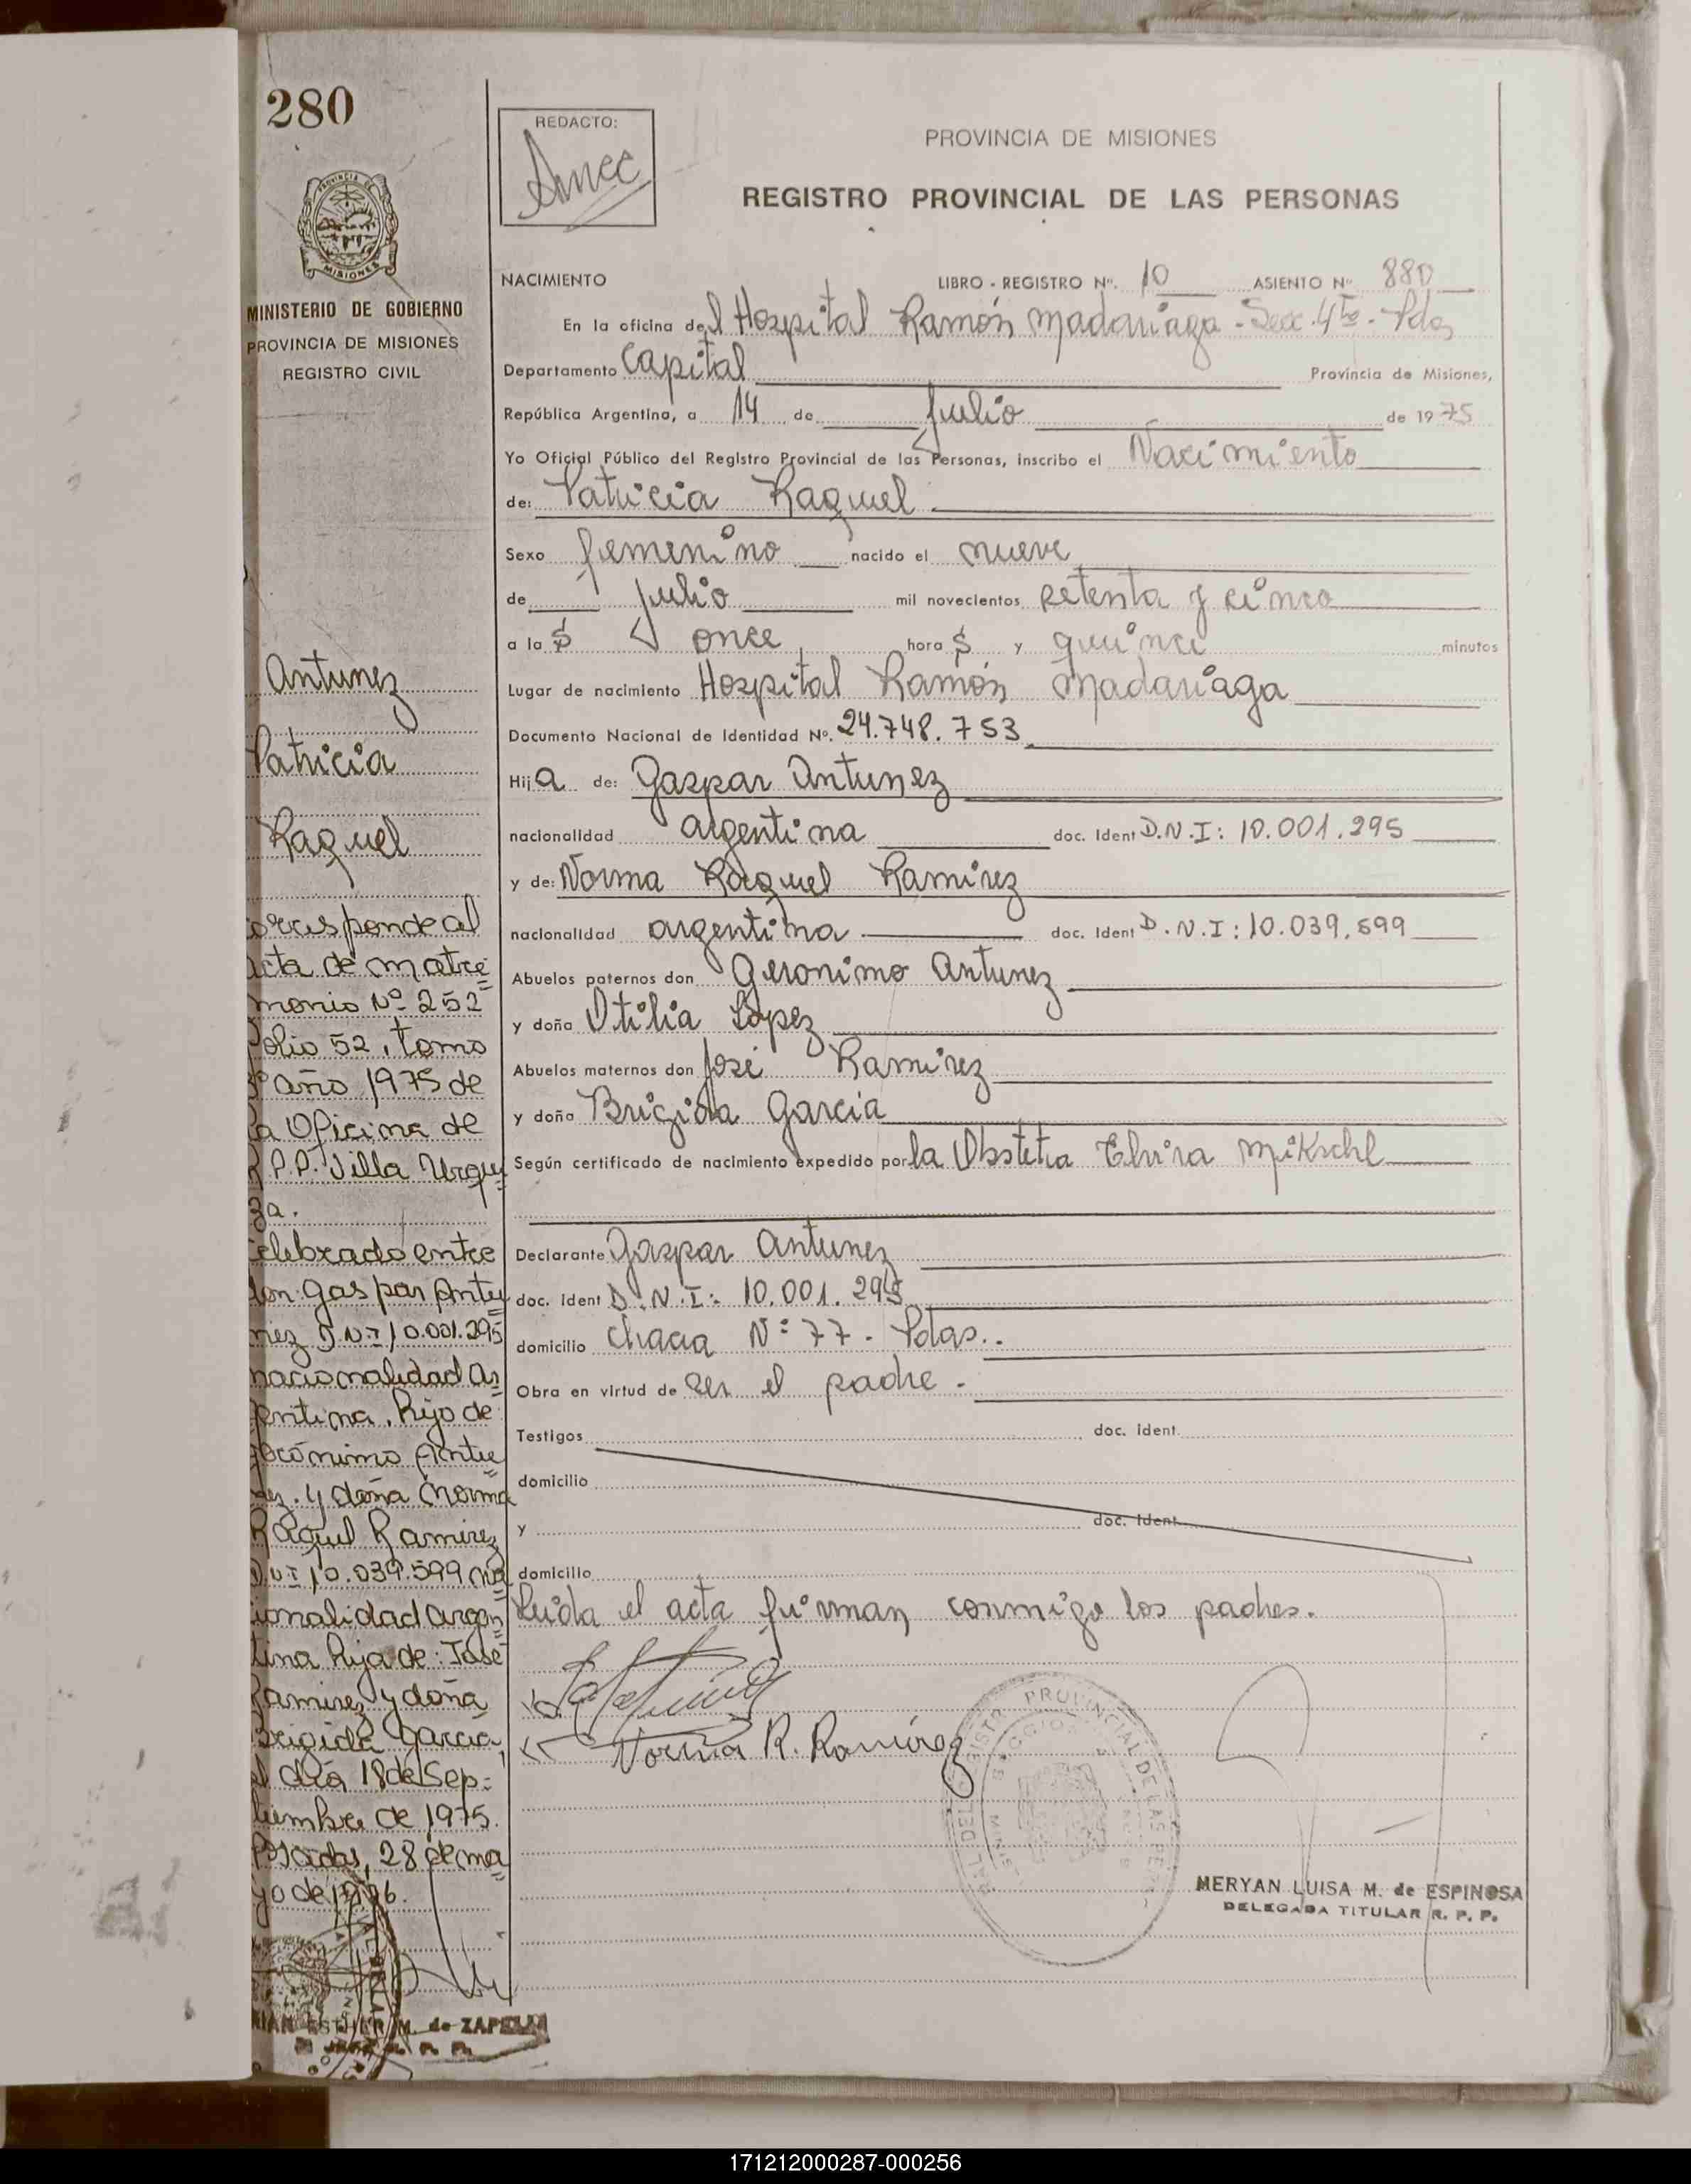 280
PROVINCIA DE
MISIONES
MINISTERIO DE GOBIERNO
PROVINCIA DE MISIONES
REGISTRO CIVIL
REDACTO:
PROVINCIA DE MISIONES
REGISTRO PROVINCIAL DE LAS PERSONAS
NACIMIENTO LIBRO - REGISTRO Nº. 10 ASIENTO Nº 880
En la oficina del Hospital Ramón Madariaga - Secc. 4ta - Pdas
Departamento Capital Provincia de Misiones,
República Argentina, a 14 de Julio de 1975
Yo Oficial Público del Registro Provincial de las Personas, inscribo el Nacimiento
de: Patricia Raquel
Sexo femenino nacido el nueve
de julio mil novecientos setenta y cinco
a las once horas y quince minutos
Lugar de nacimiento Hospital Ramón Madariaga
Documento Nacional de Identidad Nº. 24.748.753
Hija de: Gaspar Antunez
nacionalidad argentina doc. Ident D.N.I: 10.001.295
y de: Norma Raquel Ramirez
nacionalidad argentina doc. Ident D.N.I: 10.039.599
Abuelos paternos don Geronimo Antunez
y doña Otilia Lopez
Abuelos maternos don José Ramirez
y doña Brigida Garcia
Según certificado de nacimiento expedido por la Obstetra Elvira Mikschl
Declarante Gaspar Antunez
doc. Ident D.N.I: 10.001.295
domicilio Chacra Nº 77 - Pdas.
Obra en virtud de ser el padre.
Testigos doc. Ident.
domicilio
y doc. Ident.
domicilio
Leida el acta firman conmigo los padres.
Norma R. Ramirez
MERYAN LUISA M. de ESPINOSA
DELEGADA TITULAR R. P. P.
Antunez
Patricia
Raquel
orresponde al
acta de matri
monio Nº 252
folio 52, tomo
año 1975 de
la Oficina de
R.P.P. Villa Urqui
za.
celebrado entre
don Gaspar Antu
nez D.N.I 10.001.295
nacionalidad ar
gentina, hijo de
Gerónimo Antu
nez. y doña Norma
Raquel Ramirez
D.N.I 10.039.599 na
cionalidad argen
tina hija de: José
Ramirez y doña
Brigida Garcia,
el día 18 de Sep-
tiembre de 1975.
Posadas, 28 de ma
yo de
ESTHER M. de ZAPELLI
171212000287-000256